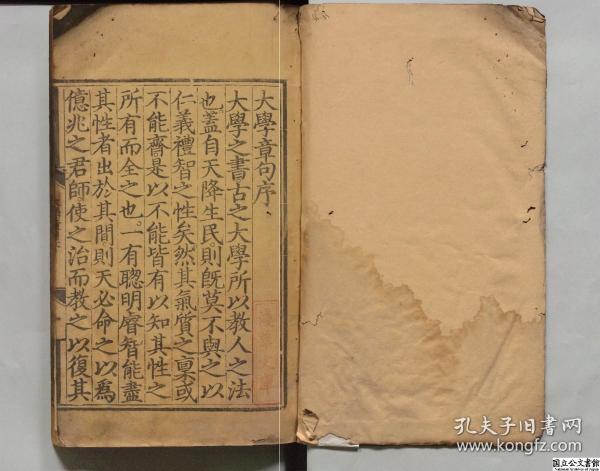 大學章句序
大學之書古之大學所以教人之法
也蓋自天降生民則既莫不與之以
仁義禮智之性矣然其氣質之稟或
不能齊是以不能皆有以知其性之
所有而全之也一有聰明睿智能盡
其性者出於其間則天必命之以爲
億兆之君師使之治而教之以復其
孔夫子旧書网
www.kongfz.com
国立公文書館
National Archives of Japan